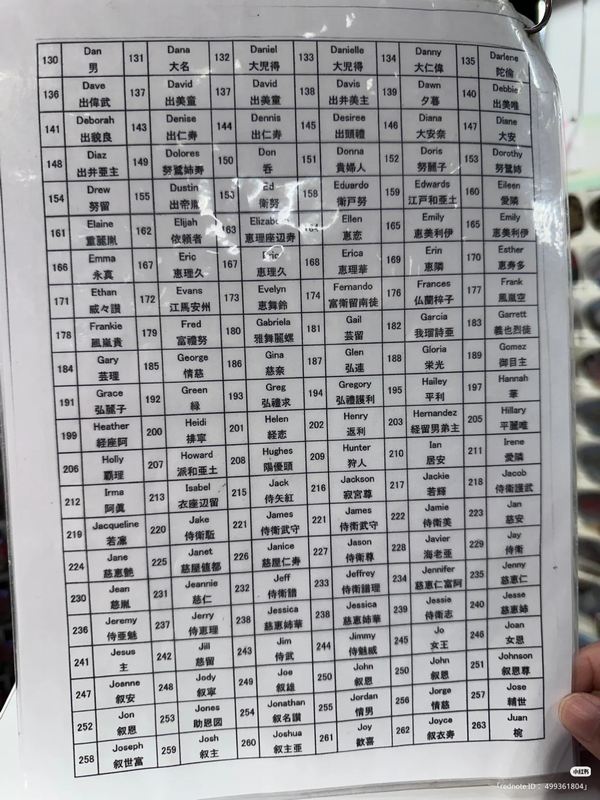 130 Dan 男 131 Dana 大名 132 Daniel 大児得 133 Danielle 大児得 134 Danny 大仁偉 135 Darlene 陀倫
136 Dave 出偉武 137 David 出美童 137 David 出美童 138 Davis 出井美主 139 Dawn 夕暮 140 Debbie 出美唯
141 Deborah 出貌良 143 Denise 出仁寿 144 Dennis 出仁寿 145 Desiree 出頭禮 146 Diana 大安奈 147 Diane 大安
148 Diaz 出井亜主 149 Dolores 努鷺姉寿 150 Don 呑 151 Donna 貴婦人 152 Doris 努麗子 153 Dorothy 努鷺姉
154 Drew 努留 155 Dustin 出帝胤 Ed 衛努 158 Eduardo 衛戸努 159 Edwards 江戸和亜土 160 Eileen 愛隣
161 Elaine 重麗胤 162 Elijah 依頼者 163 Elizabeth 恵理座辺寿 164 Ellen 恵恋 165 Emily 恵美利伊 165 Emily 恵美利伊
166 Emma 永真 167 Eric 恵理久 167 Eric 恵理久 168 Erica 恵理華 169 Erin 恵隣 170 Esther 恵寿多
171 Ethan 威々讃 172 Evans 江馬安州 173 Evelyn 恵舞鈴 174 Fernando 富衛留南徒 176 Frances 仏蘭梓子 177 Frank 風嵐空
178 Frankie 風嵐貴 179 Fred 富禮努 180 Gabriela 雅舞麗螺 181 Gail 芸留 182 Garcia 我瑠詩亜 183 Garrett 義也烈徒
184 Gary 芸理 185 George 情慈 186 Gina 慈奈 187 Glen 弘連 188 Gloria 栄光 189 Gomez 御目主
191 Grace 弘麗子 192 Green 緑 193 Greg 弘禮求 194 Gregory 弘禮護利 195 Hailey 平利 197 Hannah 華
199 Heather 経座阿 200 Heidi 排寧 201 Helen 経恋 202 Henry 返利 203 Hernandez 経留男弟主 205 Hillary 平麗唯
206 Holly 覇理 207 Howard 派和亜土 208 Hughes 陽優頭 209 Hunter 狩人 210 Ian 居安 211 Irene 愛隣
212 Irma 阿眞 213 Isabel 衣座辺留 215 Jack 侍矢紅 216 Jackson 寂宮尊 217 Jackie 若輝 218 Jacob 侍衛護武
219 Jacqueline 若凛 220 Jake 侍衛 221 James 侍衛武守 221 James 侍衛武守 222 Jamie 侍衛美 223 Jan 慈安
224 Jane 慈恵艶 225 Janet 慈屋値都 226 Janice 慈屋仁寿 227 Jason 侍衛尊 228 Javier 海老亜 229 Jay 侍衛
230 Jean 慈胤 231 Jeannie 慈仁 232 Jeff 侍衛譜 233 Jeffrey 侍衛譜理 234 Jennifer 慈恵仁富阿 235 Jenny 慈恵仁
236 Jeremy 侍亜魅 237 Jerry 侍恵理 238 Jessica 慈恵姉華 238 Jessica 慈恵姉華 239 Jessie 侍衛志 240 Jesse 慈恵姉
241 Jesus 主 242 Jill 慈留 243 Jim 侍武 244 Jimmy 侍魅威 245 Jo 女王 246 Joan 女恩
247 Joanne 叙安 248 Jody 叙寧 249 Joe 叙雄 250 John 叙恩 250 John 叙恩 251 Johnson 叙恩尊
252 Jon 叙恩 253 Jones 助恩図 254 Jonathan 叙名讃 255 Jordan 情男 256 Jorge 情慈 257 Jose 輔世
258 Joseph 叙世富 259 Josh 叙主 260 Joshua 叙主亜 261 Joy 歓喜 262 Joyce 叙衣寿 263 Juan 椀
小红书
「rednote ID： 499361804」